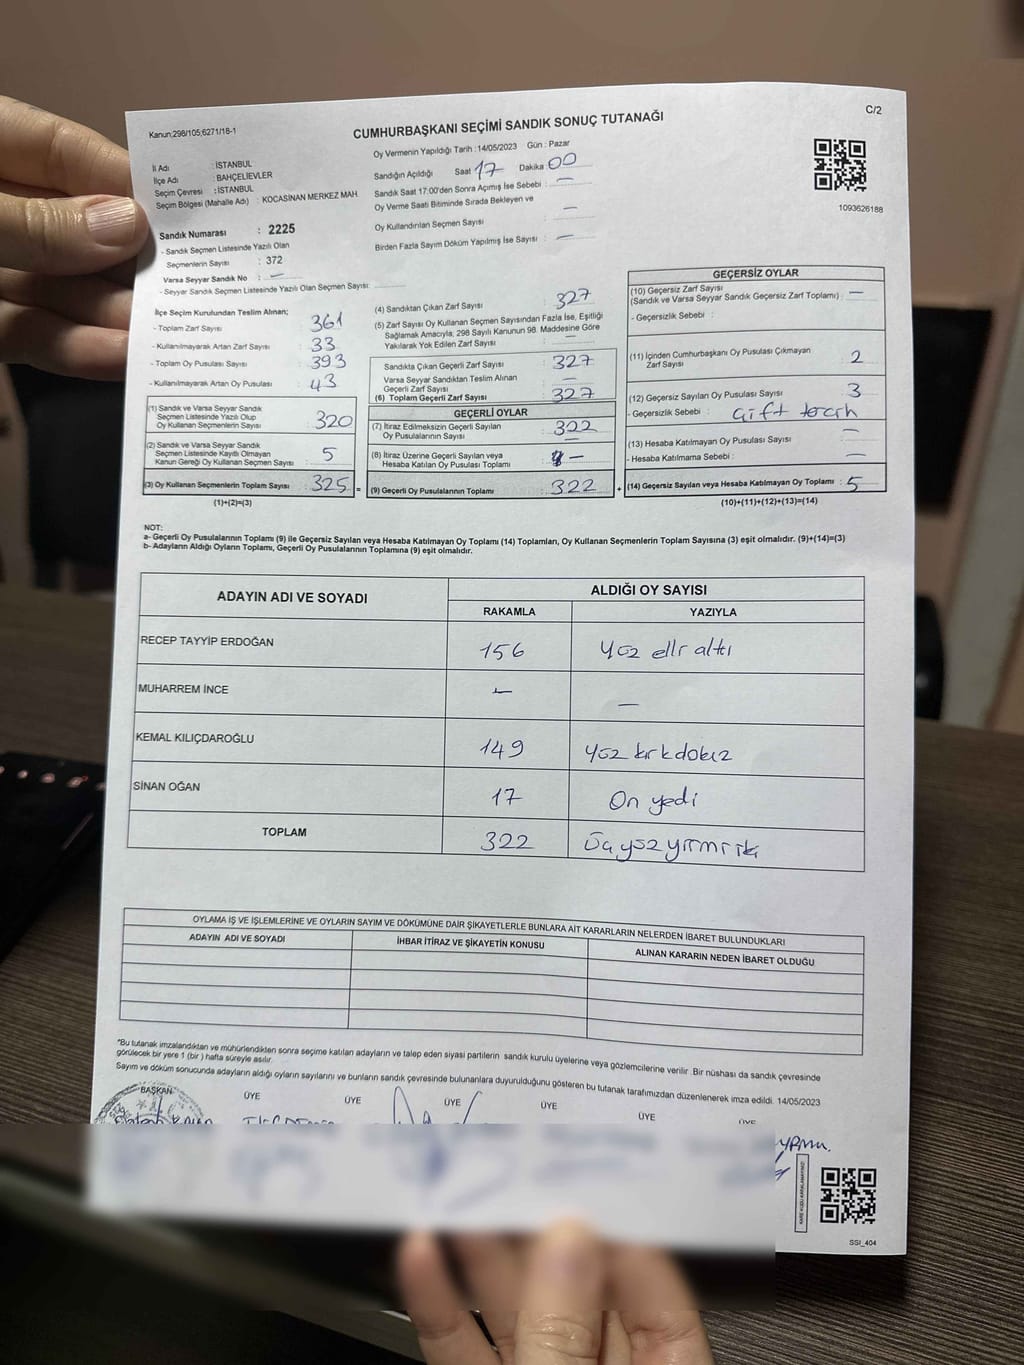 Kanun;298/105;6271/18-1
CUMHURBAŞKANI SEÇİMİ SANDIK SONUÇ TUTANAĞI
C/2
İl Adı : İSTANBUL
İlçe Adı : BAHÇELİEVLER
Seçim Çevresi : İSTANBUL
Seçim Bölgesi (Mahalle Adı) : KOCASİNAN MERKEZ MAH.
Sandık Numarası : 2225
- Sandık Seçmen Listesinde Yazılı Olan
Seçmenlerin Sayısı : 372
Varsa Seyyar Sandık No : —
- Seyyar Sandık Seçmen Listesinde Yazılı Olan Seçmen Sayısı:
Oy Vermenin Yapıldığı Tarih : 14/05/2023 Gün : Pazar
Sandığın Açıldığı Saat 17 Dakika 00
Sandık Saat 17:00'den Sonra Açımış İse Sebebi : —
Oy Verme Saati Bitiminde Sırada Bekleyen ve
Oy Kullandırılan Seçmen Sayısı : —
Birden Fazla Sayım Döküm Yapılmış İse Sayısı : —
1093626188
İlçe Seçim Kurulundan Teslim Alınan;
- Toplam Zarf Sayısı : 361
- Kullanılmayarak Artan Zarf Sayısı : 33
- Toplam Oy Pusulası : 393
- Kullanılmayarak Artan Oy Pusulası : 43
(1) Sandık ve Varsa Seyyar Sandık
Seçmen Listesinde Yazılı Olup
Oy Kullanan Seçmenlerin Sayısı : 320
(2) Sandık ve Varsa Seyyar Sandık
Seçmen Listesinde Kayıtlı Olmayan
Kanun Gereği Oy Kullanan Seçmen Sayısı : 5
(3) Oy Kullanan Seçmenlerin Toplam Sayısı : 325 =
(1)+(2)=(3)
(4) Sandıktan Çıkan Zarf Sayısı : 327
(5) Zarf Sayısı Oy Kullanan Seçmen Sayısından Fazla İse, Eşitliği
Sağlamak Amacıyla; 298 Sayılı Kanunun 98. Maddesine Göre
Yakılarak Yok Edilen Zarf Sayısı : —
Sandıkta Çıkan Geçerli Zarf Sayısı : 327
Varsa Seyyar Sandıktan Teslim Alınan
Geçerli Zarf Sayısı : —
(6) Toplam Geçerli Zarf Sayısı : 327
GEÇERLİ OYLAR
(7) İtiraz Edilmeksizin Geçerli Sayılan
Oy Pusulalarının Sayısı : 322
(8) İtiraz Üzerine Geçerli Sayılan veya
Hesaba Katılan Oy Pusulası Toplamı : —
(9) Geçerli Oy Pusulalarının Toplamı : 322 +
GEÇERSİZ OYLAR
(10) Geçersiz Zarf Sayısı
(Sandık ve Varsa Seyyar Sandık Geçersiz Zarf Toplamı) : —
- Geçersizlik Sebebi :
(11) İçinden Cumhurbaşkanı Oy Pusulası Çıkmayan
Zarf Sayısı : 2
(12) Geçersiz Sayılan Oy Pusulası Sayısı : 3
- Geçersizlik Sebebi : Çift tercih
(13) Hesaba Katılmayan Oy Pusulası Sayısı : —
- Hesaba Katılmama Sebebi : —
(14) Geçersiz Sayılan veya Hesaba Katılmayan Oy Toplamı : 5
(10)+(11)+(12)+(13)=(14)
NOT:
a- Geçerli Oy Pusulalarının Toplamı (9) ile Geçersiz Sayılan veya Hesaba Katılmayan Oy Toplamı (14) Toplamları, Oy Kullanan Seçmenlerin Toplam Sayısına (3) eşit olmalıdır. (9)+(14)=(3)
b- Adayların Aldığı Oyların Toplamı, Geçerli Oy Pusulalarının Toplamına (9) eşit olmalıdır.
ADAYIN ADI VE SOYADI
ALDIĞI OY SAYISI
RAKAMLA YAZIYLA
RECEP TAYYİP ERDOĞAN 156 Yüz elli altı
MUHARREM İNCE — —
KEMAL KILIÇDAROĞLU 149 Yüz kırkdokuz
SİNAN OĞAN 17 On yedi
TOPLAM 322 Üçyüzyirmiiki
OYLAMA İŞ VE İŞLEMLERİNE VE OYLARIN SAYIM VE DÖKÜMÜNE DAİR ŞİKAYETLERLE BUNLARA AİT KARARLARIN NELERDEN İBARET BULUNDUKLARI
ADAYIN ADI VE SOYADI İHBAR İTİRAZ VE ŞİKAYETİN KONUSU ALINAN KARARIN NEDEN İBARET OLDUĞU
*Bu tutanak imzalandıktan ve mühürlendikten sonra seçime katılan adayların ve talep eden siyasi partilerin sandık kurulu üyelerine veya gözlemcilerine verilir .Bir nüshası da sandık çevresinde
görülecek bir yere 1 (bir ) hafta süreyle asılır.
Sayım ve döküm sonucunda adayların aldığı oyların sayılarını ve bunların sandık çevresinde bulunanlara duyurulduğunu gösteren bu tutanak tarafımızdan düzenlenerek imza edildi. 14/05/2023
BAŞKAN ÜYE ÜYE ÜYE ÜYE ÜYE ÜYE
SSI_404